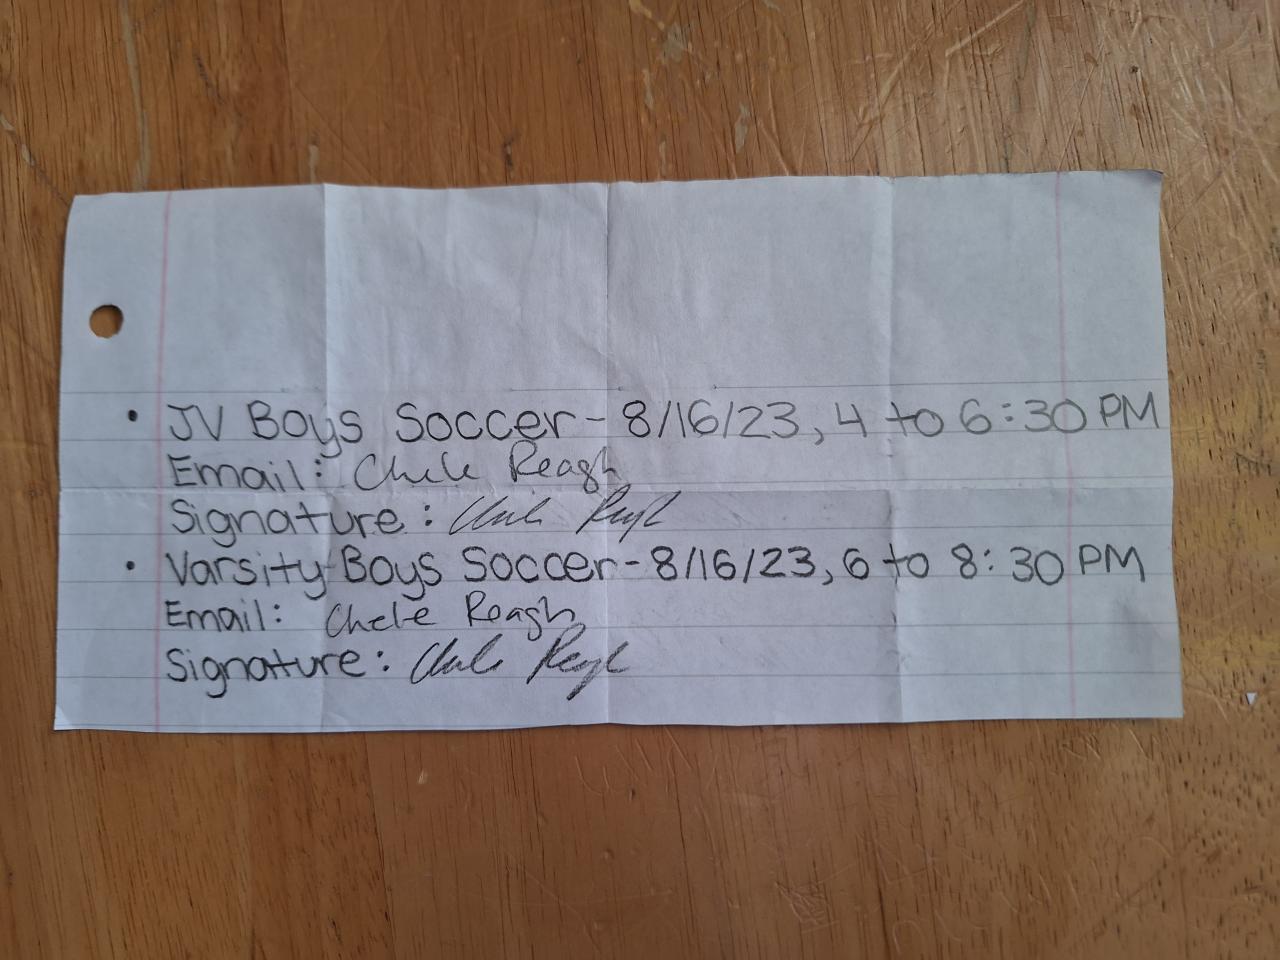 • JV Boys Soccer - 8/16/23, 4 to 6:30 PM
Email: Chele Reagh
Signature: Chele Reagh
• Varsity Boys Soccer - 8/16/23, 6 to 8:30 PM
Email: Chele Reagh
Signature: Chele Reagh